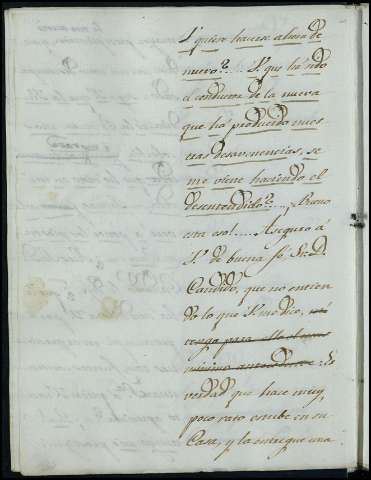 S.r quiere hacerse ahora de
nuevo?... S.r que há sido
el conductor de la nueva
que há producido nues
tras desavenencias, se
me viene haciendo el
desentendido?...., Bueno
esta eso!.... Aseguro á
S.r de buena fé, Sr. D.
Candido, que no entien
do lo que S.r me dice, ni
tengo para ello el mas
minimo antecedente. Es
verdad que hace muy
poco rato estube en su
Casa, y la entregue una